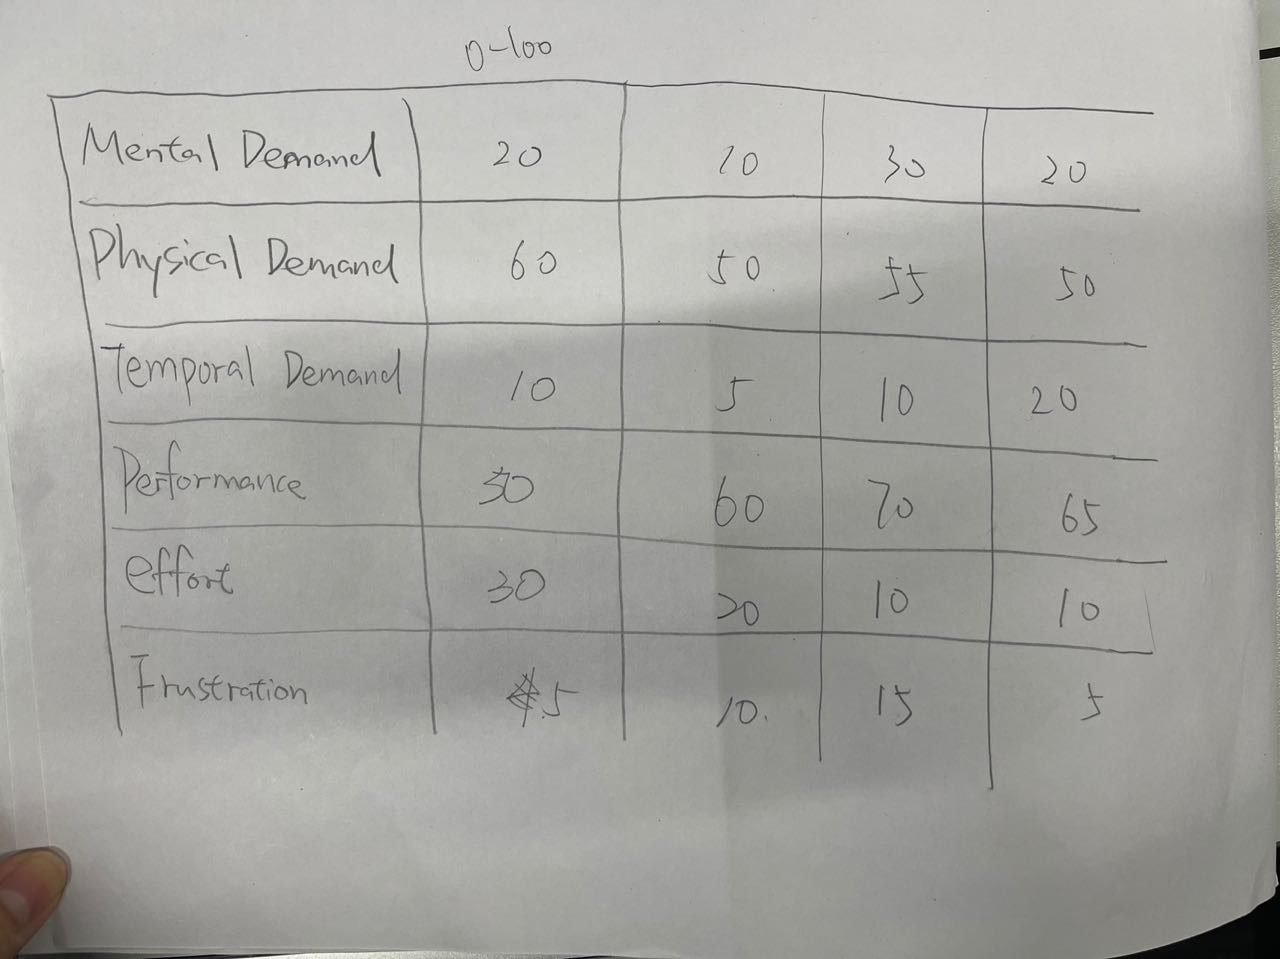 0-100
Mental Demand 20 10 30 20
Physical Demand 60 50 55 50
Temporal Demand 10 5 10 20
Performance 60 70 65
effort 30 20 10 10
Frustration 5 10 15 5